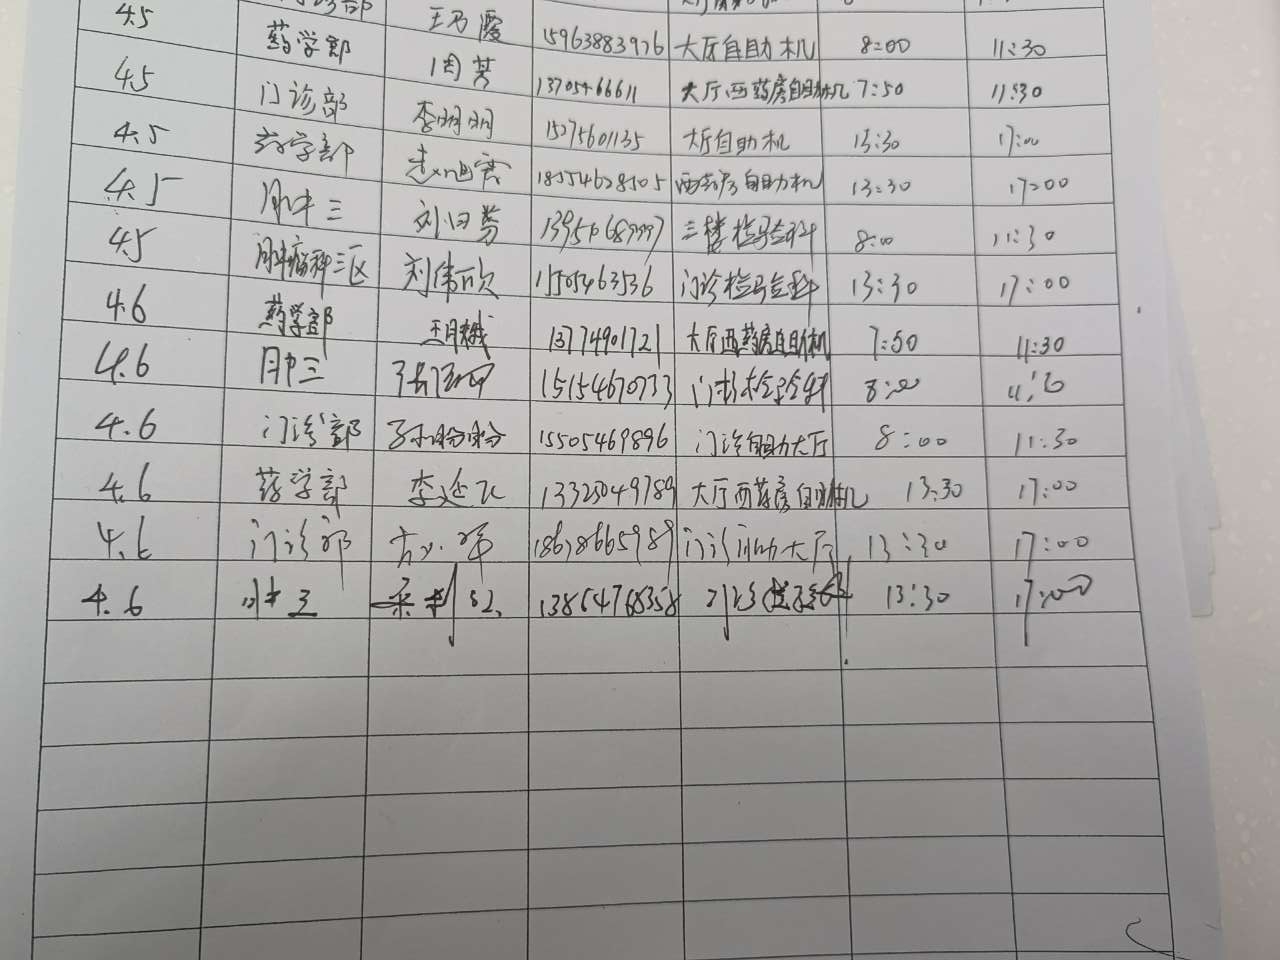 4.5 王乃霞 15963883976 大厅自助机 8:00 11:30
4.5 药学部 周芳 13705466611 大厅西药房自助机 7:50 11:30
4.5 门诊部 李明明 15275601135 大厅自助机 13:30 17:00
4.5 药学部 西药房自助机 13:30 17:00
4.5 肿三 三楼检验科 8:00 11:30
肿瘤科三区 刘伟欣 15505463536 门诊检验科 13:30 17:00
4.6 药学部 13774901721 大厅西药房自助机 7:50 11:30
4.6 肿三 15154670733 门诊检验科 8:00
4.6 门诊部 孙盼盼 15505469896 门诊自助大厅 8:00 11:30
4.6 药学部 李延飞 13325049789 大厅西药房自助机 13:30 17:00
4.6 门诊部 18678665989 门诊自助大厅 13:30 17:00
4.6 肿三 13864768358 门诊检验科 13:30 17:00